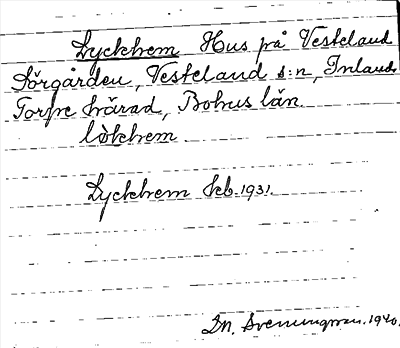 Lyckhem Hus på Vesteland
Sörgården, Vesteland s:n, Inlands
Torpe härad, Bohus län.
lỳkhem
Lyckhem Jeb. 1931.
Dn. Svenungsson. 1940.